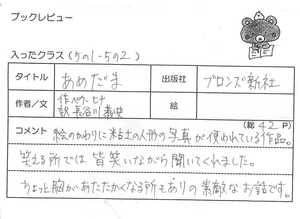 ブックレビュー
入ったクラス(5の1-5の2)
タイトル あめだま 出版社 ブロンズ新社
作者/文 作 ペク・ヒナ 訳 長谷川義史 絵
(総 42 P)
コメント 絵のかわりに粘土の人形の写真が使われている作品。
笑える所では皆笑いながら聞いてくれました。
ちょっと胸があたたかくなる所もありの素敵なお話です。